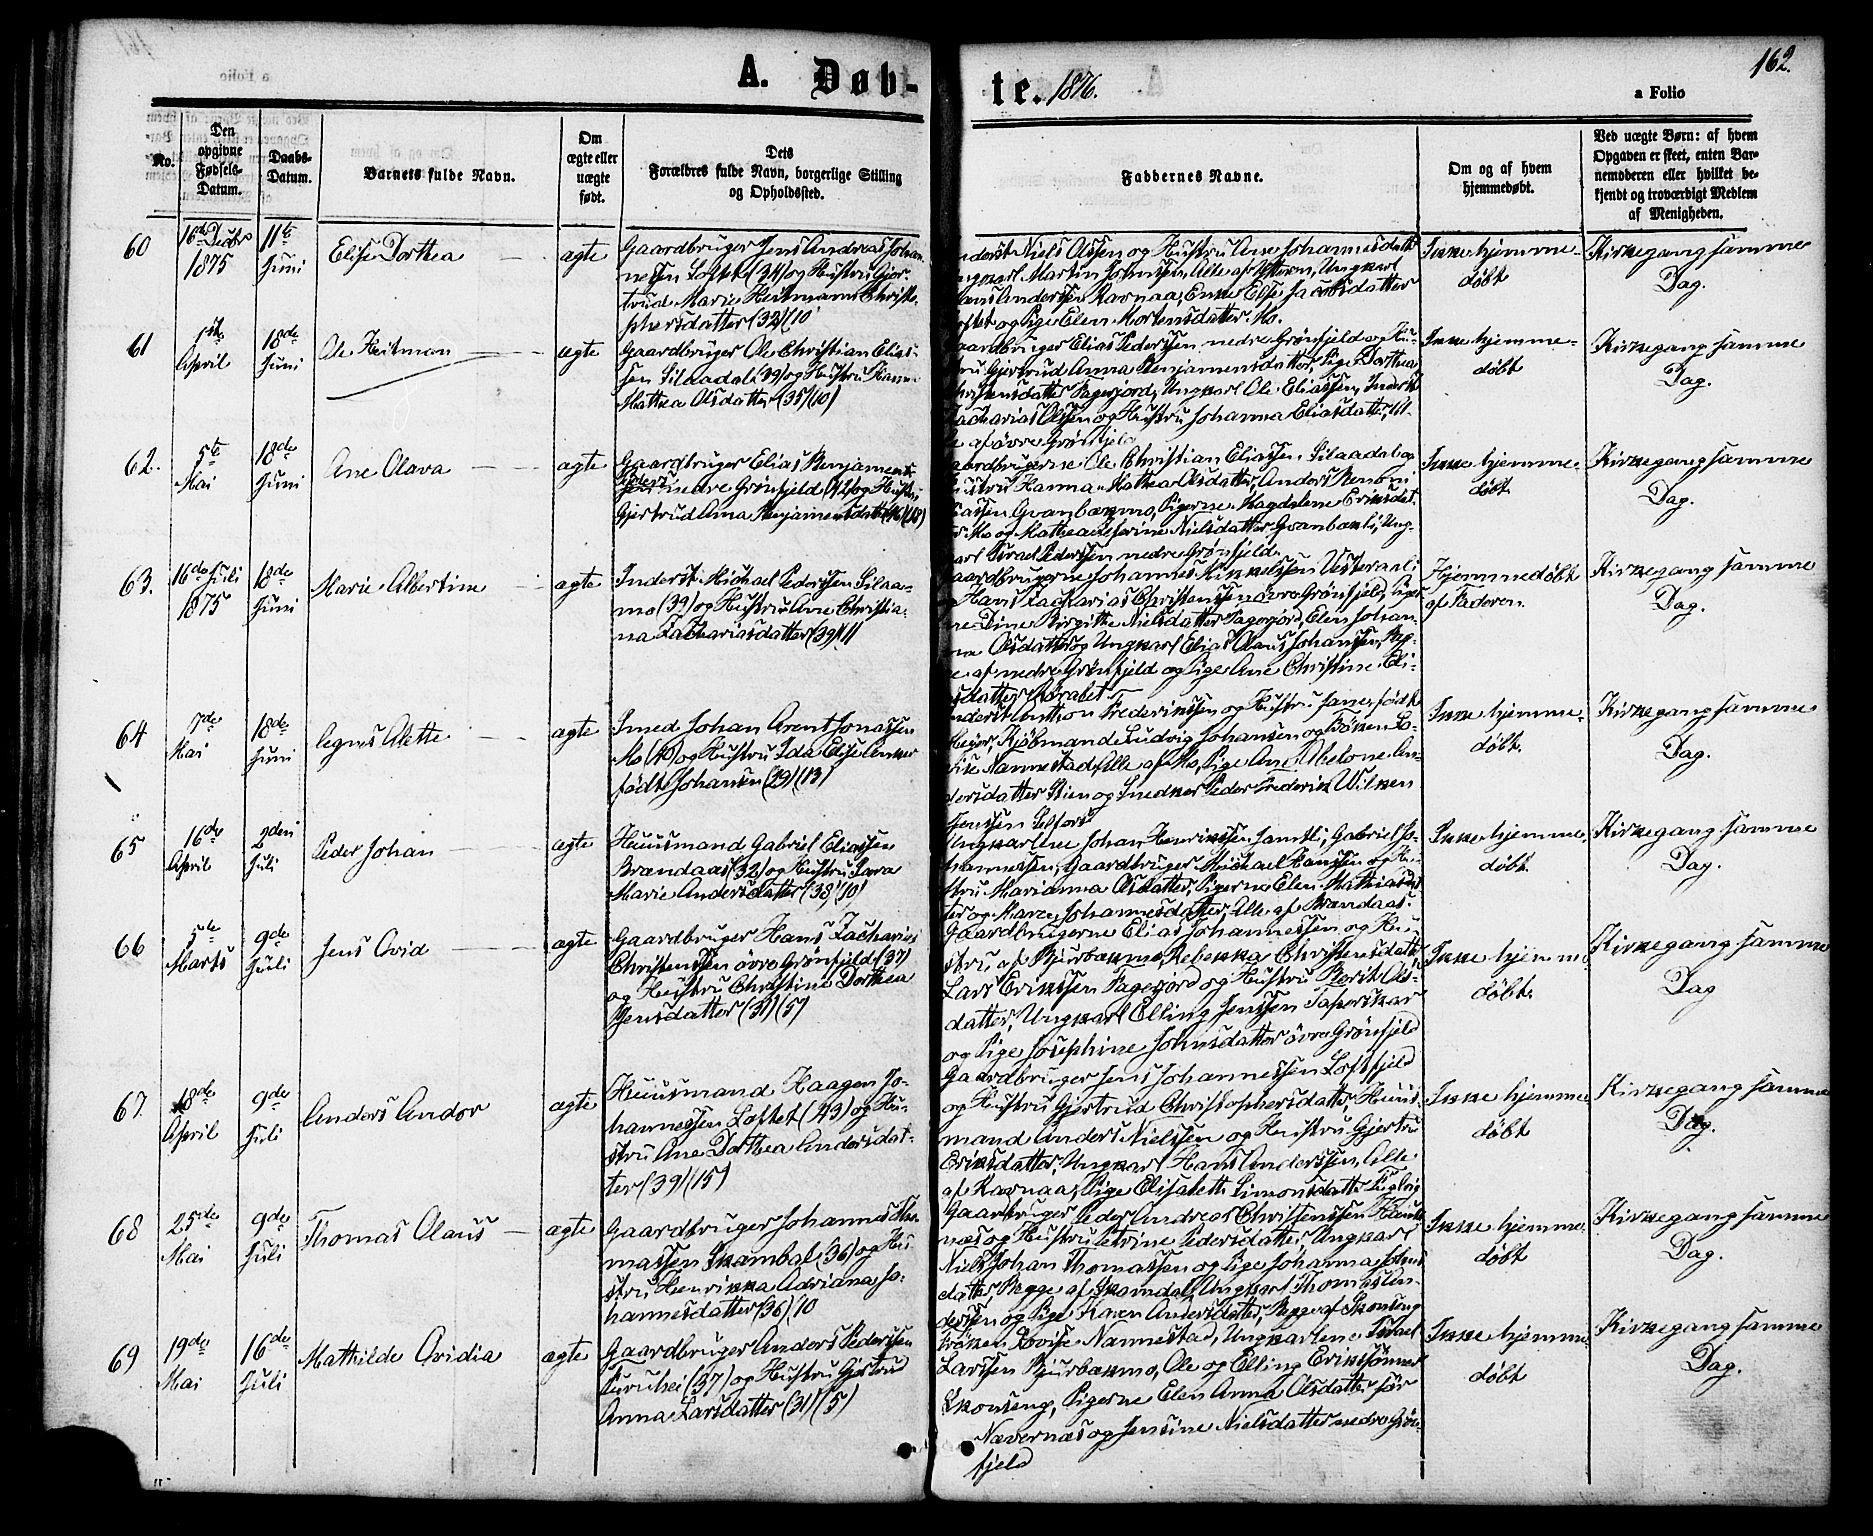 162.
A. Døb-
te. 1876.
a Folio
No.
Den opgivne Fødsels-Datum.
Daabs-Datum.
Barnets fulde Navn.
Om ægte eller uægte født.
Dets Forældres fulde Navn, borgerlige Stilling og Opholdssted.
Faddernes Navne.
Om og af hvem hjemmedøbt.
Ved uægte Børn: af hvem
Opgaven er skeet, enten Bar-
nemoderen eller hvilket be-
kjendt og troværdigt Medlem
af Menigheden.
60
16de Decbr 1875
11te Juni
Elise Dorthea
ægte
Gaardbruger Jens Andreas Johan-
nessen Loftet (34) og Hustru Gjer-
trud Marie Heitmann Christo-
phersdatter (32) (10
Inderst Niels Olssen og Hustru Ane Johannesdatter
Ungkarl Martin Johnssen, Alle af Ytteren, Ungkarl
Hans Anderssen Ravnaa, Enke Else Jacobsdatter
Loftet og Pige Elen Mortensdatter Mo.
Ikke hjemme-
døbt
Kirkegang samme
Dag.
61
1ste April
18de Juni
Ole Heitman
ægte
Gaardbruger Ole Christian Elias-
sen Silaadal (39) og Hustru Hanna
Mathea Olsdatter (35) (10)
Gaardbruger Elias Pederssen nedre Grønfjeld og Hu-
stru Gjertrud Anna Benjaminsdatter, Pige Dorthea
Christensdatter Fagerjord, Ungkarl Ole Eliassen, Inderst
Zacharias Olssen og Hustru Johanna Eliasdatter, Al-
le af øvre Grønfjeld
Ikke hjemme-
døbt
Kirkegang samme
Dag.
62.
5te Mai
18de Juni
Ane Olava
ægte
Gaardbruger Elias
nedre Grønfjeld (42) og Hustru
Gjertrud Anna Benjaminsdatter
Gaardbrugerne Ole Christian Eliassen Silaadal og
Hustru Hanna Mathea Olsdatter, Anders Benón
Eliassen Granbækmo, Pigerne Magdalene Eriksdat-
ter Mo og Mathea Nielsdatter Granbækli, Ung-
karl Israel Pederssen nedre Grønfjeld.
Ikke hjemme-
døbt.
Kirkegang samme
Dag.
63.
16de Juli 1875
18de Juni
Marie Albertine
ægte
Inderst Michael Pederssen Silaa-
mo (39) og Hustru Ane Christia-
na Zachariasdatter (39) (11
Gaardbrugerne Johannes Mikkelssen Vesteraali
og Hans Zacharias Christenssen øvre Grønfjeld, Piger-
ne Birgitte Nielsdatter Fagerjord, Elen Johan-
na Olsdatter og Ungkarl Elias Olaus Johanssen, Beg-
ge af nedre Grønfjeld og Pige Ane Christine Eli-
asdatter
Hjemmedøbt
af Faderen.
Kirkegang samme
Dag.
64
7de Mai
18de Juni
Agnes Alette
ægte
Smed Johan Arent Jonassen
Mo (40) og Hustru Ida Elise Anker
født Johansen (29) (13)
Inderst Anton Frederikssen og Hustru Jane, født
Meyer, Kjøbmand Ludvig Johansen og Frøken Lo-
vise Nannestad, Alle af Mo, Pige Ane Abelone An-
dersdatter Stien og Snedker Peder Frederik Wilken
Jenssen Selfors
Ikke hjemme-
døbt.
Kirkegang samme
Dag.
65
16de April
2den Juli
Peder Johan
ægte
Huusmand Gabriel Eliassen
Brændaas (32) og Hustru Sara
Marie Andersdatter (38) (10)
Ungkarlene Johan Henrikssen Jamtli, Gabriel Jo-
hannessen, Gaardbruger Michael Hanssen og Hu-
stru Marianna Olsdatter, Pigerne Elen Mathiasdat-
ter og Maren Johannesdatter, Alle af Brændaas.
Ikke hjemme-
døbt.
Kirkegang samme
Dag.
66
5te Marts
9de Juli
Jens Ovid
ægte
Gaardbruger Hans Zacharias
Christenssen øvre Grønfjeld (37)
og Hustru Christine Dorthea
Jensdatter (31) (5)
Gaardbrugerne Elias Johannessen og Hu-
stru af Bjurbækmo, Rebekka Christensdatter,
Lars Erikssen Fagerjord og Hustru Berit Ols-
datter, Ungkarl Elling Jenssen Tapeskar
og Pige Josephine Johnsdatter øvre Grønfjeld
Ikke hjemme-
døbt.
Kirkegang samme
Dag
67.
18de April
9de Juli
Anders Andor
ægte
Huusmand Haagen Jo-
hannessen Loftet (43) og Hu-
stru Ane Dorthea Andersdat-
ter (39) (15)
Gaardbruger Jens Johannessen Loftfjeld
og Hustru Gjertrud Christophersdatter, Huus-
mand Anders Nielssen og Hustru Gjertru
Eriksdatter, Ungkarl Hans Anderssen, Alle
af Ravnaa, Pige Elisabeth Simonsdatter
Ikke hjemme-
døbt
Kirkegang samme
Dag.
68
25de Mai
9de Juli
Thomas Olaus
ægte
Gaardbruger Johannes Tho-
massen Skamdal (36) og Hu-
stru Henrikka Adriana Jo-
hannesdatter (36) (10
Gaardbruger Peder Andreas Christenssen Hauk-
næs og Hustru Petrine Pedersdatter, Ungkarl
Niels Johan Thomassen og Pige Johanna Johns-
datter, Begge af Skamdal, Ungkarl Thomas An-
derssen og Pige Karen Andersdatter, Begge af Skonseng
Ikke hjemme-
døbt
Kirkegang samme
Dag.
69
19de Mai
16de Juli
Mathilde Ovidia
ægte
Gaardbruger Anders Pederssen
Furuhei (37) og Hustru Gjertrud
Anna Larsdatter (31) (5)
Frøken Lovise Nannestad, Ungkarlene Israel
Larssen Bjurbækmo, Ole og Elling Erikssønner
Skonseng, Pigerne Elen Anna Olsdatter sør
Nævernæs og Jensine Nielsdatter nedre Grøn-
fjeld
Ikke hjemme-
døbt
Kirkegang samme
Dag.